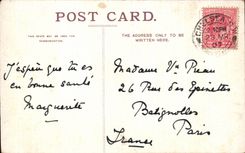 POST CARD.
THIS SPACE MAY BE USED FOR
COMMUNICATION.
THE ADDRESS ONLY TO BE
WRITTEN HERE.
CHELSEA
J'espère que tu es
en bonne santé
Marguerite
Madame Vve
26 Rue des Epinettes
Batignolles
Paris
France